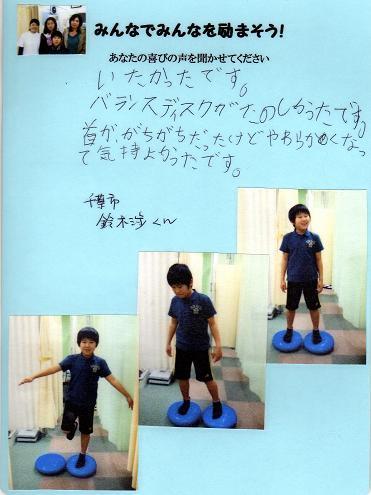 みんなでみんなを励まそう!
あなたの喜びの声を聞かせてください
いたかったです。
バランスディスクがたのしかったです。
首が、がちがちだったけどやわらかくなっ
て気持よかったです。
千葉市
鈴木渉くん